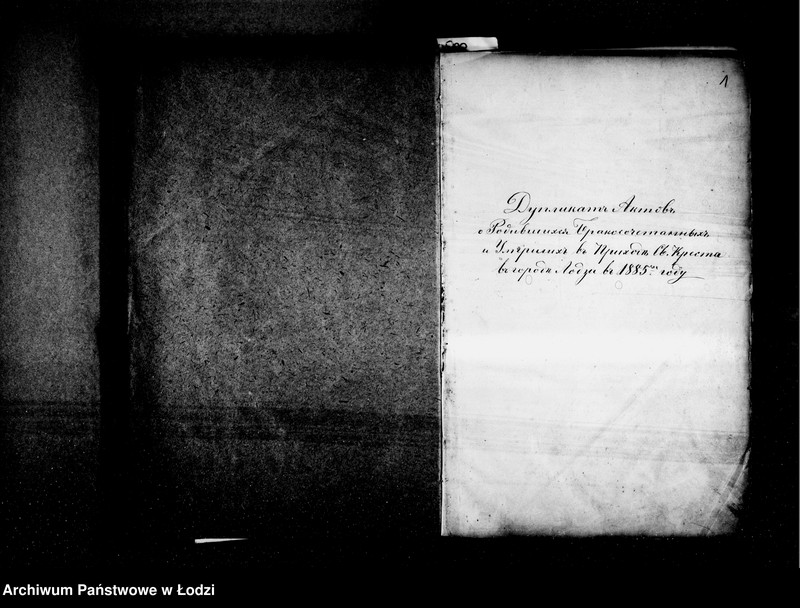 1
Дупликатъ Актовъ
о Родившихся Бракосочетанныхъ
и Умершихъ въ Приходѣ Св. Креста
въ городѣ Лодзи въ 1885мъ году
Archiwum Państwowe w Łodzi